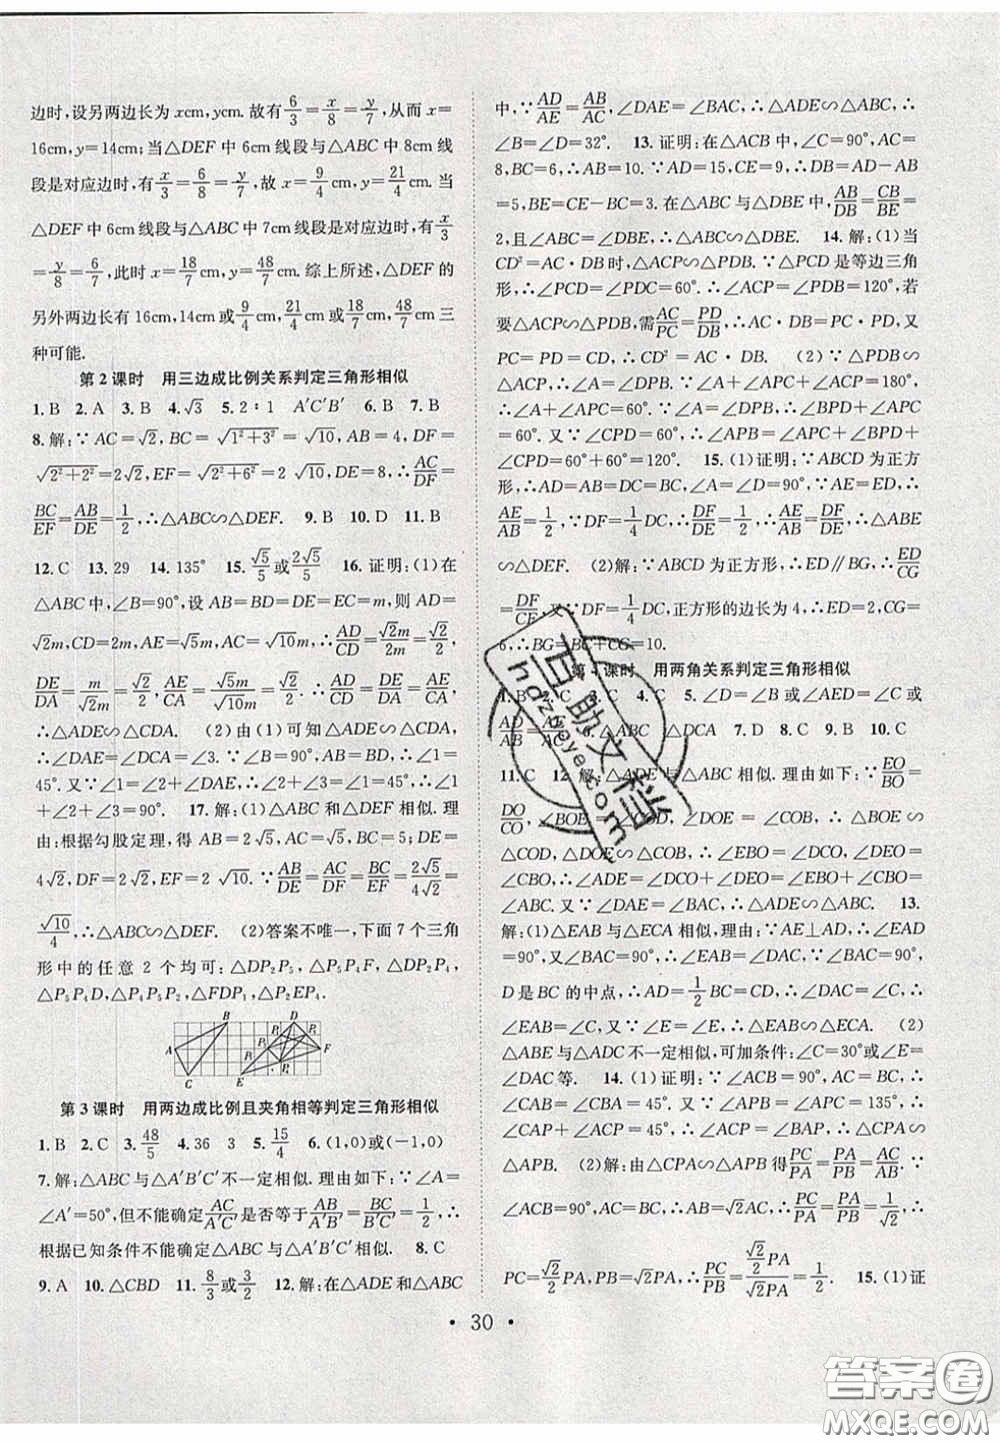 边时,设另两边长为 xcm,ycm. 故有6/3=x/8=y/7,从而 x=
16cm,y=14cm;当△DEF 中 6cm 线段与△ABC 中 8cm 线
段是对应边时,有x/3=6/8=y/7,故 x=9/4cm,y=21/4cm. 当
△DEF 中 6cm 线段与△ABC 中 7cm 线段是对应边时,有x/3
=y/8=6/7,此时 x=18/7cm,y=48/7cm. 综上所述,△DEF 的
另外两边长有 16cm,14cm 或9/4cm,21/4cm 或18/7cm,48/7cm 三
种可能.
第 2 课时 用三边成比例关系判定三角形相似
1. B 2. A 3. B 4. √3 5. 2∶1 A′C′B′ 6. B 7. B
8. 解:∵AC=√2,BC=√(1²+3²)=√10,AB=4,DF=
√(2²+2²)=2√2,EF=√(2²+6²)=2√10,DE=8,∴AC/DF=
BC/EF=AB/DE=1/2,∴△ABC∽△DEF. 9. B 10. D 11. B
12. C 13. 29 14. 135° 15. √5/5或2√5/5 16. 证明:(1)在
△ABC 中,∠B=90°,设 AB=BD=DE=EC=m,则 AD=
√2m,CD=2m,AE=√5m,AC=√10m,∴AD/CD=√2m/2m=√2/2,
DE/DA=m/√2m=√2/2,AE/CA=√5m/√10m=√2/2,∴AD/CD=DE/DA=AE/CA,
∴△ADE∽△CDA. (2)由(1)可知△ADE∽△CDA,
∴∠DAE=∠2. 又∵在△ABD 中,∠B=90°,AB=BD,∴∠1=
45°. 又∵∠1=∠ADE=∠2+∠DAE=∠2+∠2=45°,∴∠
1+∠2+∠3=90°. 17. 解:(1)△ABC 和△DEF 相似. 理
由:根据勾股定理,得 AB=2√5,AC=√5,BC=5;DE=
4√2,DF=2√2,EF=2√10. ∵AB/DE=AC/DF=BC/EF=2√5/4√2=
√10/4,∴△ABC∽△DEF. (2)答案不唯一,下面 7 个三角
形中的任意 2 个均可:△DP₂P₅,△P₅P₄F,△DP₂P₄,
△P₅P₄D,△P₄P₅P₂,△FDP₁,△P₂EP₄.
A B C D E F P₁ P₂ P₃ P₄ P₅
第 3 课时 用两边成比例且夹角相等判定三角形相似
1. B 2. C 3. 48/5 4. 36 3 5. 15/4 6. (1,0)或(-1,0)
7. 解:△ABC 与△A′B′C′不一定相似. 理由如下:∵∠A=
∠A′=50°,但不能确定AC/A′C′是否等于AB/A′B′=BC/B′C′=1/2,∴
根据已知条件不能确定△ABC 与△A′B′C′相似. 8. C
9. A 10. △CBD 11. 8/3或3/2 12. 解:在△ADE 和△ABC
中,∵AD/AE=AB/AC,∠DAE=∠BAC,∴△ADE∽△ABC,∴
∠B=∠D=32°. 13. 证明:在△ACB 中,∠C=90°,AC=
8,BC=6,∴AB=10. ∵AD=15,CE=9,∴BD=AD-AB
=5,BE=CE-BC=3. 在△ABC 与△DBE 中,AB/DB=CB/BE=
2,且∠ABC=∠DBE,∴△ABC∽△DBE. 14. 解:(1)当
CD²=AC·DB 时,△ACP∽△PDB. ∵△PCD 是等边三角
形,∴∠PCD=∠PDC=60°. ∴∠ACP=∠PDB=120°,若
要△ACP∽△PDB,需AC/PC=PD/DB,∴AC·DB=PC·PD,又
PC=PD=CD,∴CD²=AC·DB. (2)∵△ACP∽△PDB,
∴∠A=∠DPB. ∵∠A+∠APC+∠ACP=180°,
∴∠A+∠APC=60°. ∵∠A=∠DPB,∴∠APC+∠DPB
=60°. 又∵∠CPD=60°,∴∠APB=∠APC+∠BPD+
∠CPD=60°+60°=120°. 15. (1)证明:∵ABCD 为正方
形,∴AD=AB=DC=BC,∠A=∠D=90°. ∵AE=ED,∴
AE/AB=1/2,∵DF=1/4DC,∴DF/DE=1/2,∴AE/AB=DF/DE,∴△ABE
∽△DEF. (2)解:∵ABCD 为正方形,∴ED∥BG,∴ED/CG
=DF/CF,又∵DF=1/4DC,正方形的边长为 4,∴ED=2,CG=
6,∴BG=BC+CG=10.
第 4 课时 用两角关系判定三角形相似
1. B 2. C 3. C 4. C 5. ∠D=∠B 或∠AED=∠C 或
AD/AB= 6. △ABC △DCA 7. D 8. C 9. B 10. C
11. C 12. 解:△ADE 与△ABC 相似. 理由如下:∵EO/BO=
DO/CO,∠BOE=∠COD,∠DOE=∠COB,∴△BOE∽
△COD,△DOE∽△COB,∴∠EBO=∠DCO,∠DEO=
∠CBO. ∵∠ADE=∠DCO+∠DEO=∠EBO+∠CBO=
∠ABC. 又∵∠DAE=∠BAC,∴△ADE∽△ABC. 13.
解:(1)△EAB 与△ECA 相似,理由:∵AE⊥AD,∴∠EAD=
90°,∴∠EAB+∠BAD=∠EAD=90°,∵∠BAC=90°,
D 是 BC 的中点,∴AD=1/2BC=CD,∴∠DAC=∠C,∴
∠EAB=∠C,又∵∠E=∠E,∴△EAB∽△ECA. (2)
△ABE 与△ADC 不一定相似,可加条件:∠C=30°或∠E=
∠DAC等. 14. (1)证明:∵∠C=90°,AC=BC,∴
△ABC 是等腰直角三角形,即∠CAP+∠PAB=45°,
∵∠APB=∠APC=135°,∴∠CAP+∠ACP=45°,
∠PAB+∠ABP=45°,∴∠ACP=∠BAP,∴△CPA∽
△APB. (2)解:由△CPA∽△APB 得PC/PA=PA/PB=AC/AB,∵
∠ACB=90°,AC=BC,∴AB=√2AC,∴PC/PA=PA/PB=√2/2,∴
PC=√2/2PA,PB=√2PA,∴PC/PB=(√2/2PA)/(√2PA)=1/2. 15. (1)证
·30·
百助文档
hdzuoye.com
答案圈
MXQE.COM